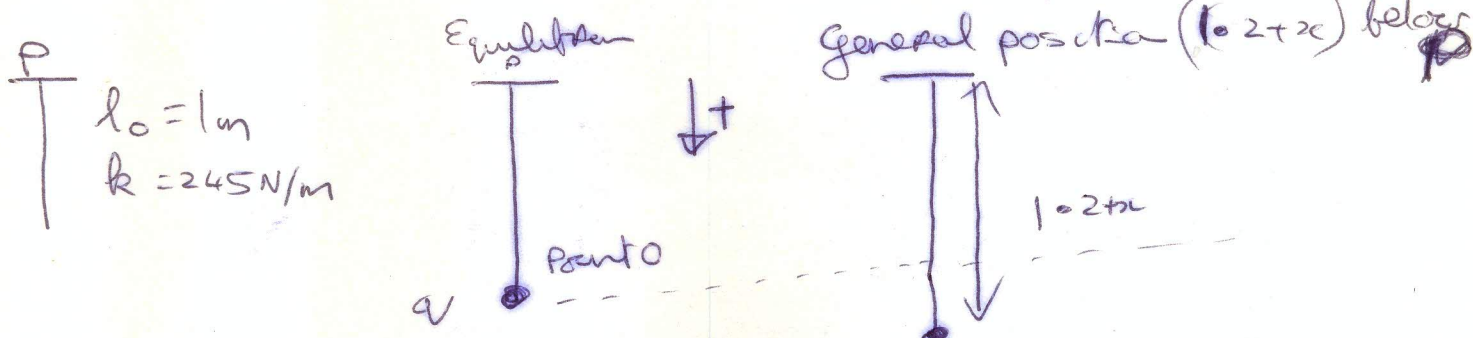 P
l₀ = 1m
k = 245 N/m
Equilibrium
P
+
Point O
q
General position (1.2+x) below P
1.2+x